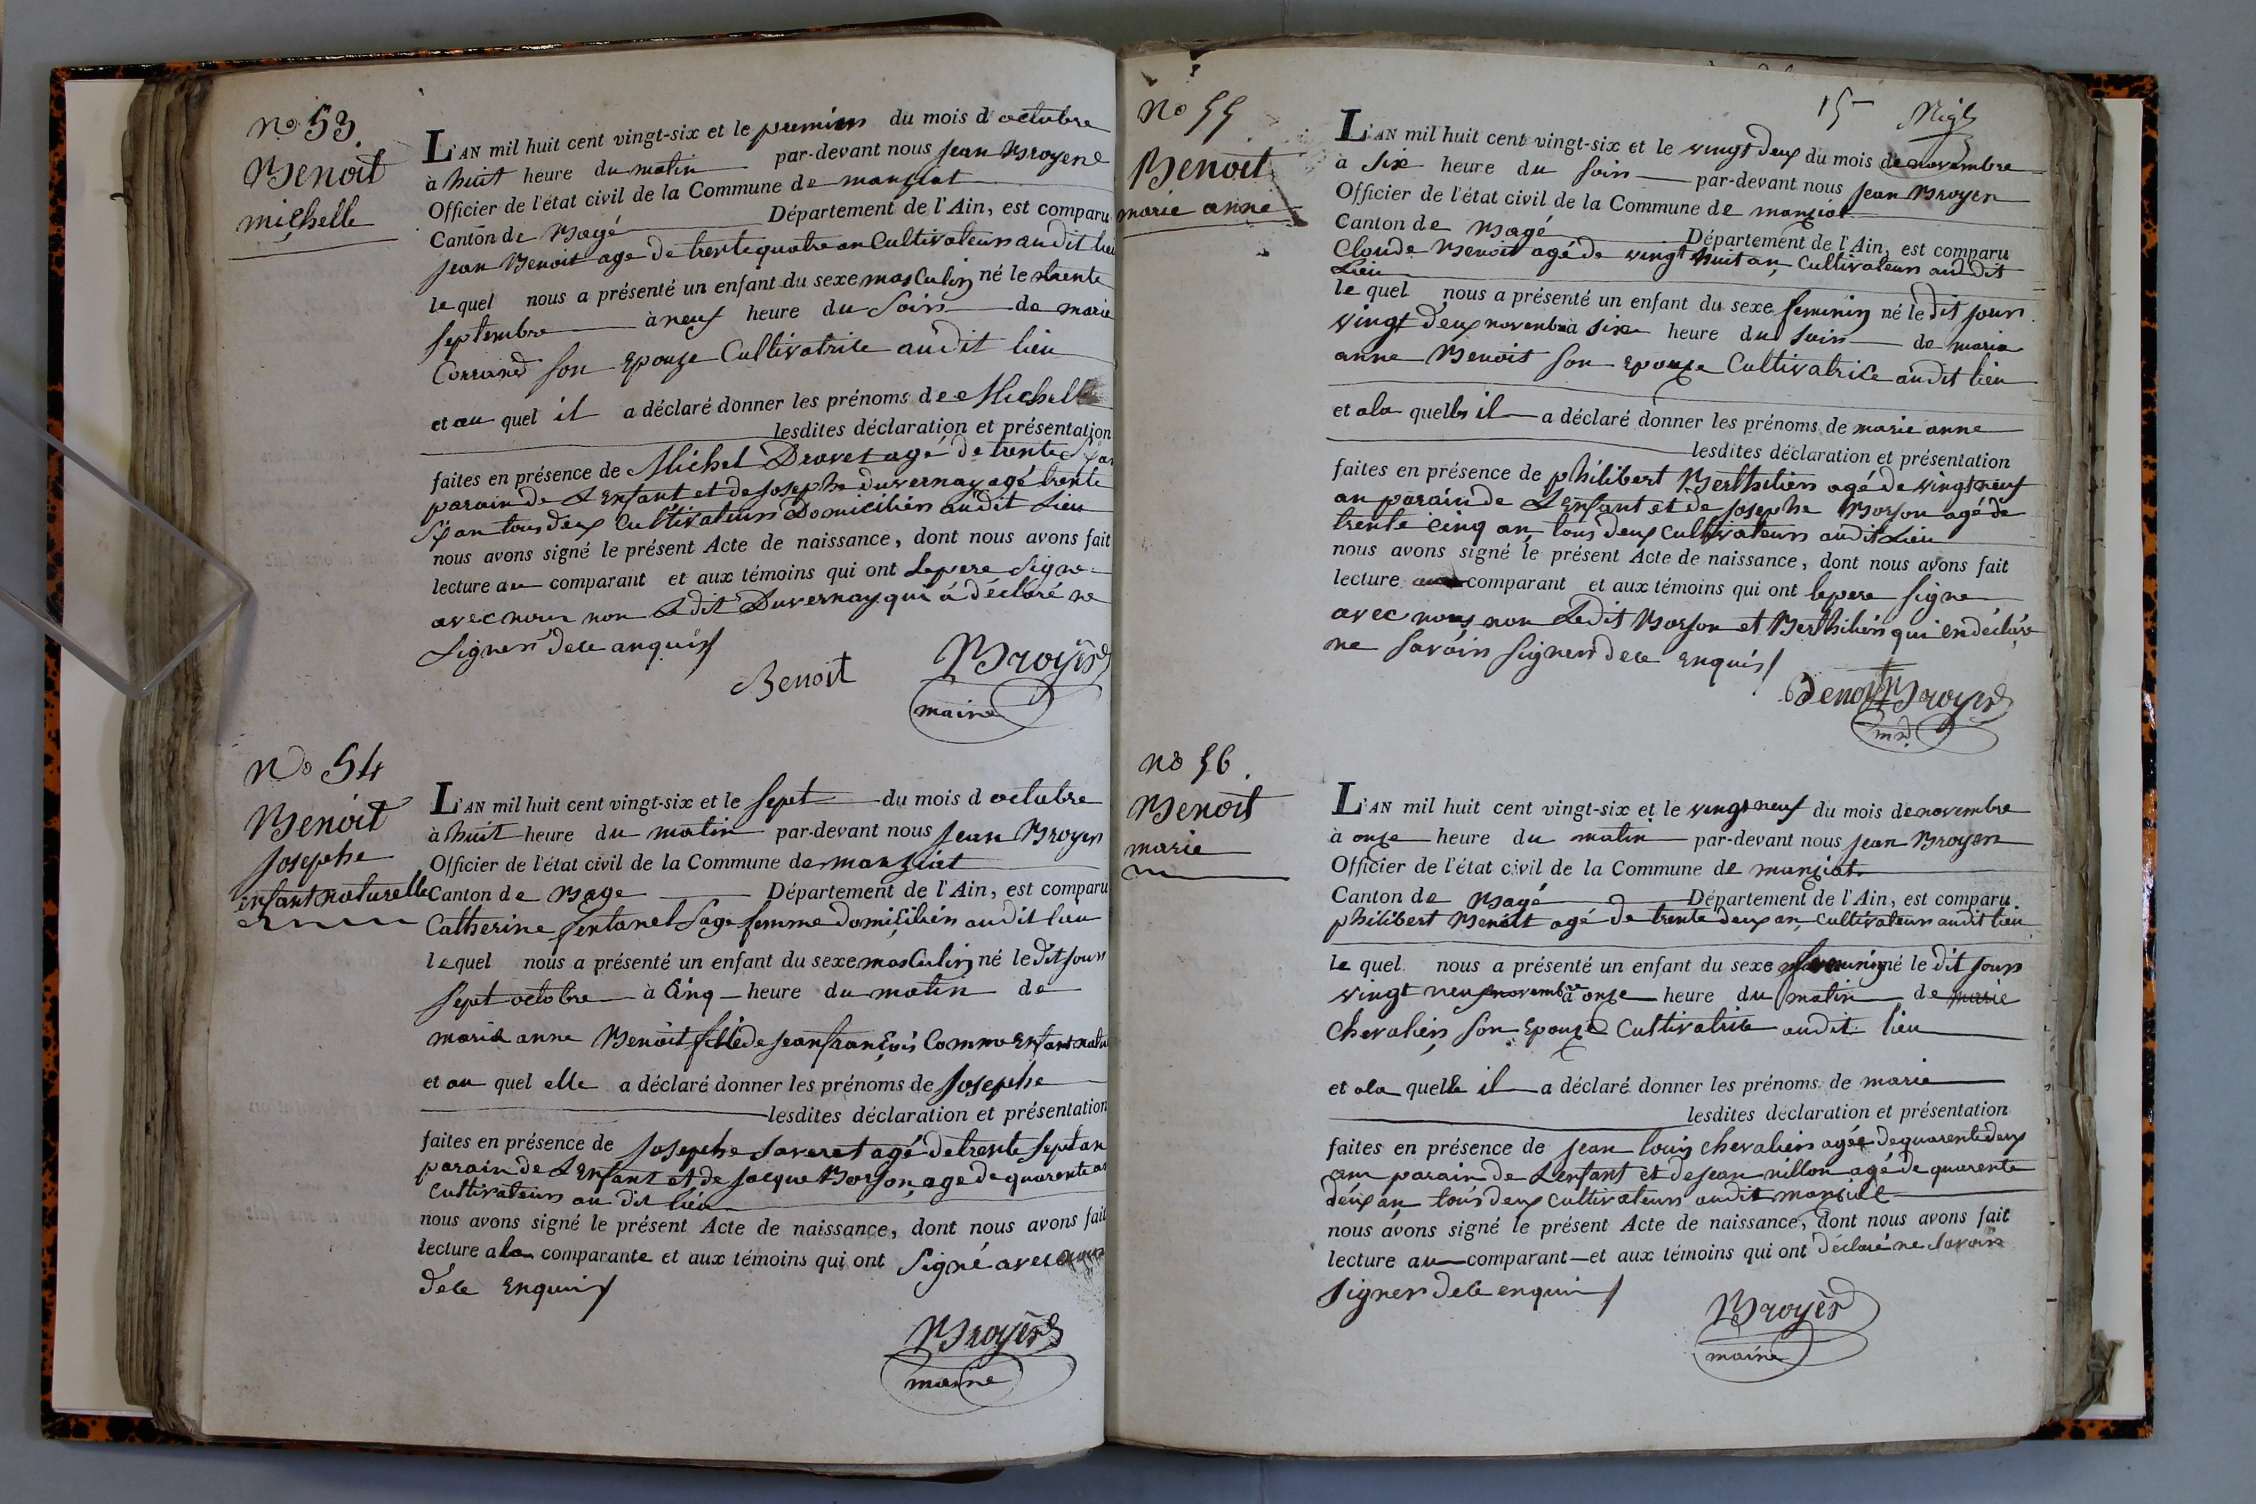 No 53.
Benoit
michelle
L'AN mil huit cent vingt-six et le premier du mois d'octobre
à huit heure du matin par-devant nous Jean Broyer
Officier de l'état civil de la Commune de manziat
Canton de Bagé Département de l'Ain, est comparu
Jean Benoit age de trente quatre an Cultivateur audit lieu
le quel nous a présenté un enfant du sexe masculin né le trente
septembre à neuf heure du Soir de marie
son Epouze Cultivatrice audit lieu
et au quel il a déclaré donner les prénoms de Michell
lesdites déclaration et présentation
faites en présence de Michel Dravet agé de trente
parain de L'Enfant et de Josephe duvernay agé trente
Six an tous deux Cultivateurs Domiciliér audit Lieu
nous avons signé le présent Acte de naissance, dont nous avons fait
lecture au comparant et aux témoins qui ont Lepere Signe
avec nous non Ledit Duvernay qui à déclaré ne
Signer de ce anquis
Benoit Broyer
maire
No 54
Benoit
Josephe
Enfant naturelle
L'AN mil huit cent vingt-six et le sept du mois d octobre
à huit heure du matin par-devant nous Jean Broyer
Officier de l'état civil de la Commune de manziat
Canton de Bage Département de l'Ain, est comparu
Catherine Sage femme domicilién audit lieu
lequel nous a présenté un enfant du sexe masculin né le dit jour
sept octobre à Cinq heure du matin de
marie anne Benoit fille de jean françois Comme Enfant natu
et au quel elle a déclaré donner les prénoms de Josephe
lesdites déclaration et présentation
faites en présence de Josephe Savaret agé de trente sept an
parain de L'Enfant et de Jacque Borson age de quarente an
Cultivateurs au dit lieu
nous avons signé le présent Acte de naissance, dont nous avons fait
lecture a la comparante et aux témoins qui ont Signé avec nous
de ce Enquis
Broyer
maire
15
No 55
Benoit
marie anne
L'AN mil huit cent vingt-six et le vingt deux du mois de novembre
à six heure du soir par-devant nous Jean Broyer
Officier de l'état civil de la Commune de manziat
Canton de Bagé Département de l'Ain, est comparu
Cloude Benoit agé de vingt huit an Cultivateur audit
Lieu
le quel nous a présenté un enfant du sexe feminin né le dit jour
vingt deux novembre à six heure du soir de marie
anne Benoit son Epouze Cultivatrice audit lieu
et a la quelle il a déclaré donner les prénoms de marie anne
lesdites déclaration et présentation
faites en présence de philibert Berthilier agé de vingt neuf
an parain de L'Enfant et de Josephe Borson agé de
trente cinq an tous deux cultivateurs audit Lieu
nous avons signé le présent Acte de naissance, dont nous avons fait
lecture au comparant et aux témoins qui ont lepere signe
avec nous non Ledit Borson et Berthilier qui en déclaré
ne savoir signer de ce Enquis
Benoit Broyer
No 56.
Benoit
marie
L'AN mil huit cent vingt-six et le vingt neuf du mois de novembre
à onze heure du matin par-devant nous Jean Broyer
Officier de l'état civil de la Commune de manziat
Canton de Bagé Département de l'Ain, est comparu
philibert Benoit agé de trente deux an, cultivateur audit lieu
le quel nous a présenté un enfant du sexe feminin né le dit jour
vingt neuf novembre à onze heure du matin de marie
Chevalier son Epouze Cultivatrice audit lieu
et a la quelle il a déclaré donner les prénoms de marie
lesdites déclaration et présentation
faites en présence de jean louis chevalier agée de quarente deux
an parain de Lenfant et de jean villon agé de quarente
deux an tous deux cultivateurs audit manziat
nous avons signé le présent Acte de naissance, dont nous avons fait
lecture au comparant et aux témoins qui ont déclaré ne savoir
signer de ce enquis
Broyer
maire